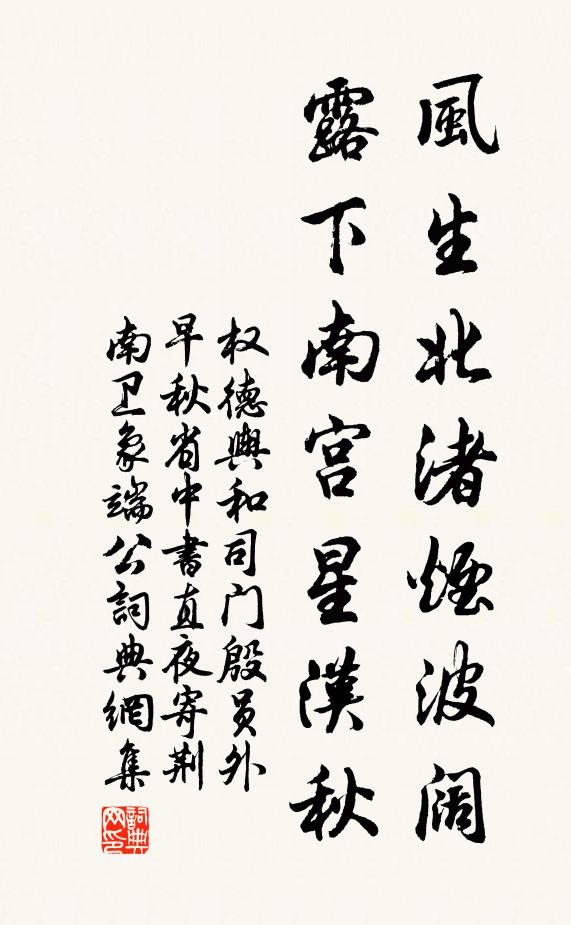 風生北渚煙波阔
露下南宫星漢秋
权德輿和司门殷员外
早秋省中書直夜寄荆
南卫象端公詞典網集
詞典网印